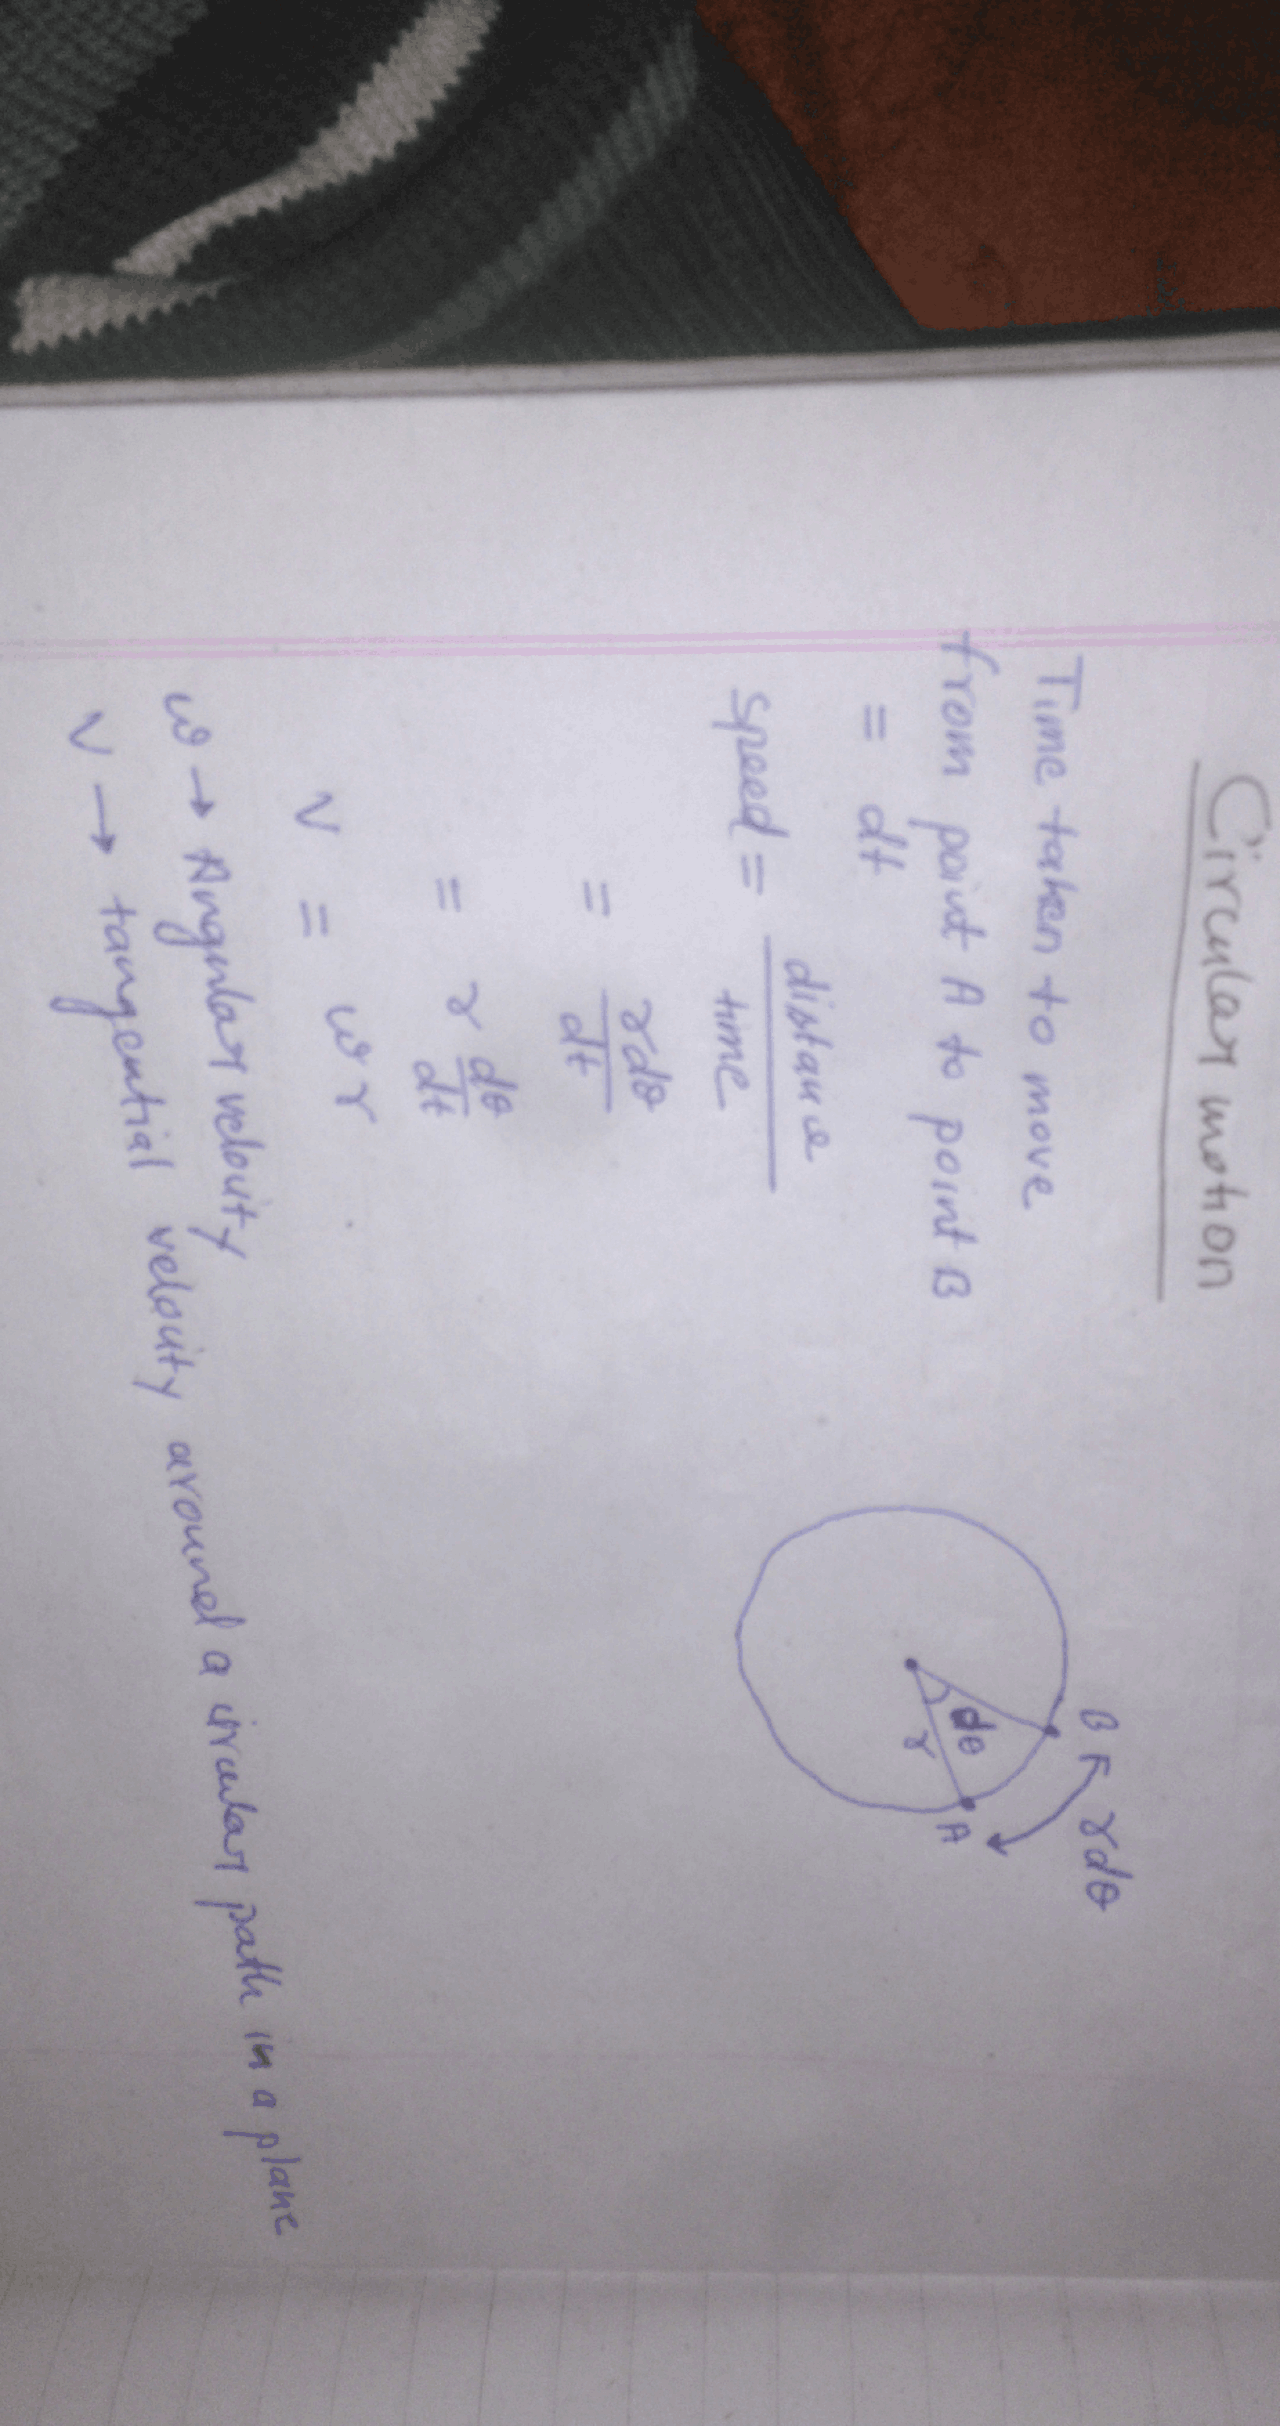 Circular motion
Time taken to move
from point A to point B
= dt
speed = distance / time
= rdθ / dt
= r dθ / dt
v = ωr
ω → Angular velocity
v → tangential velocity around a circular path in a plane
B
rdθ
dθ
r
A